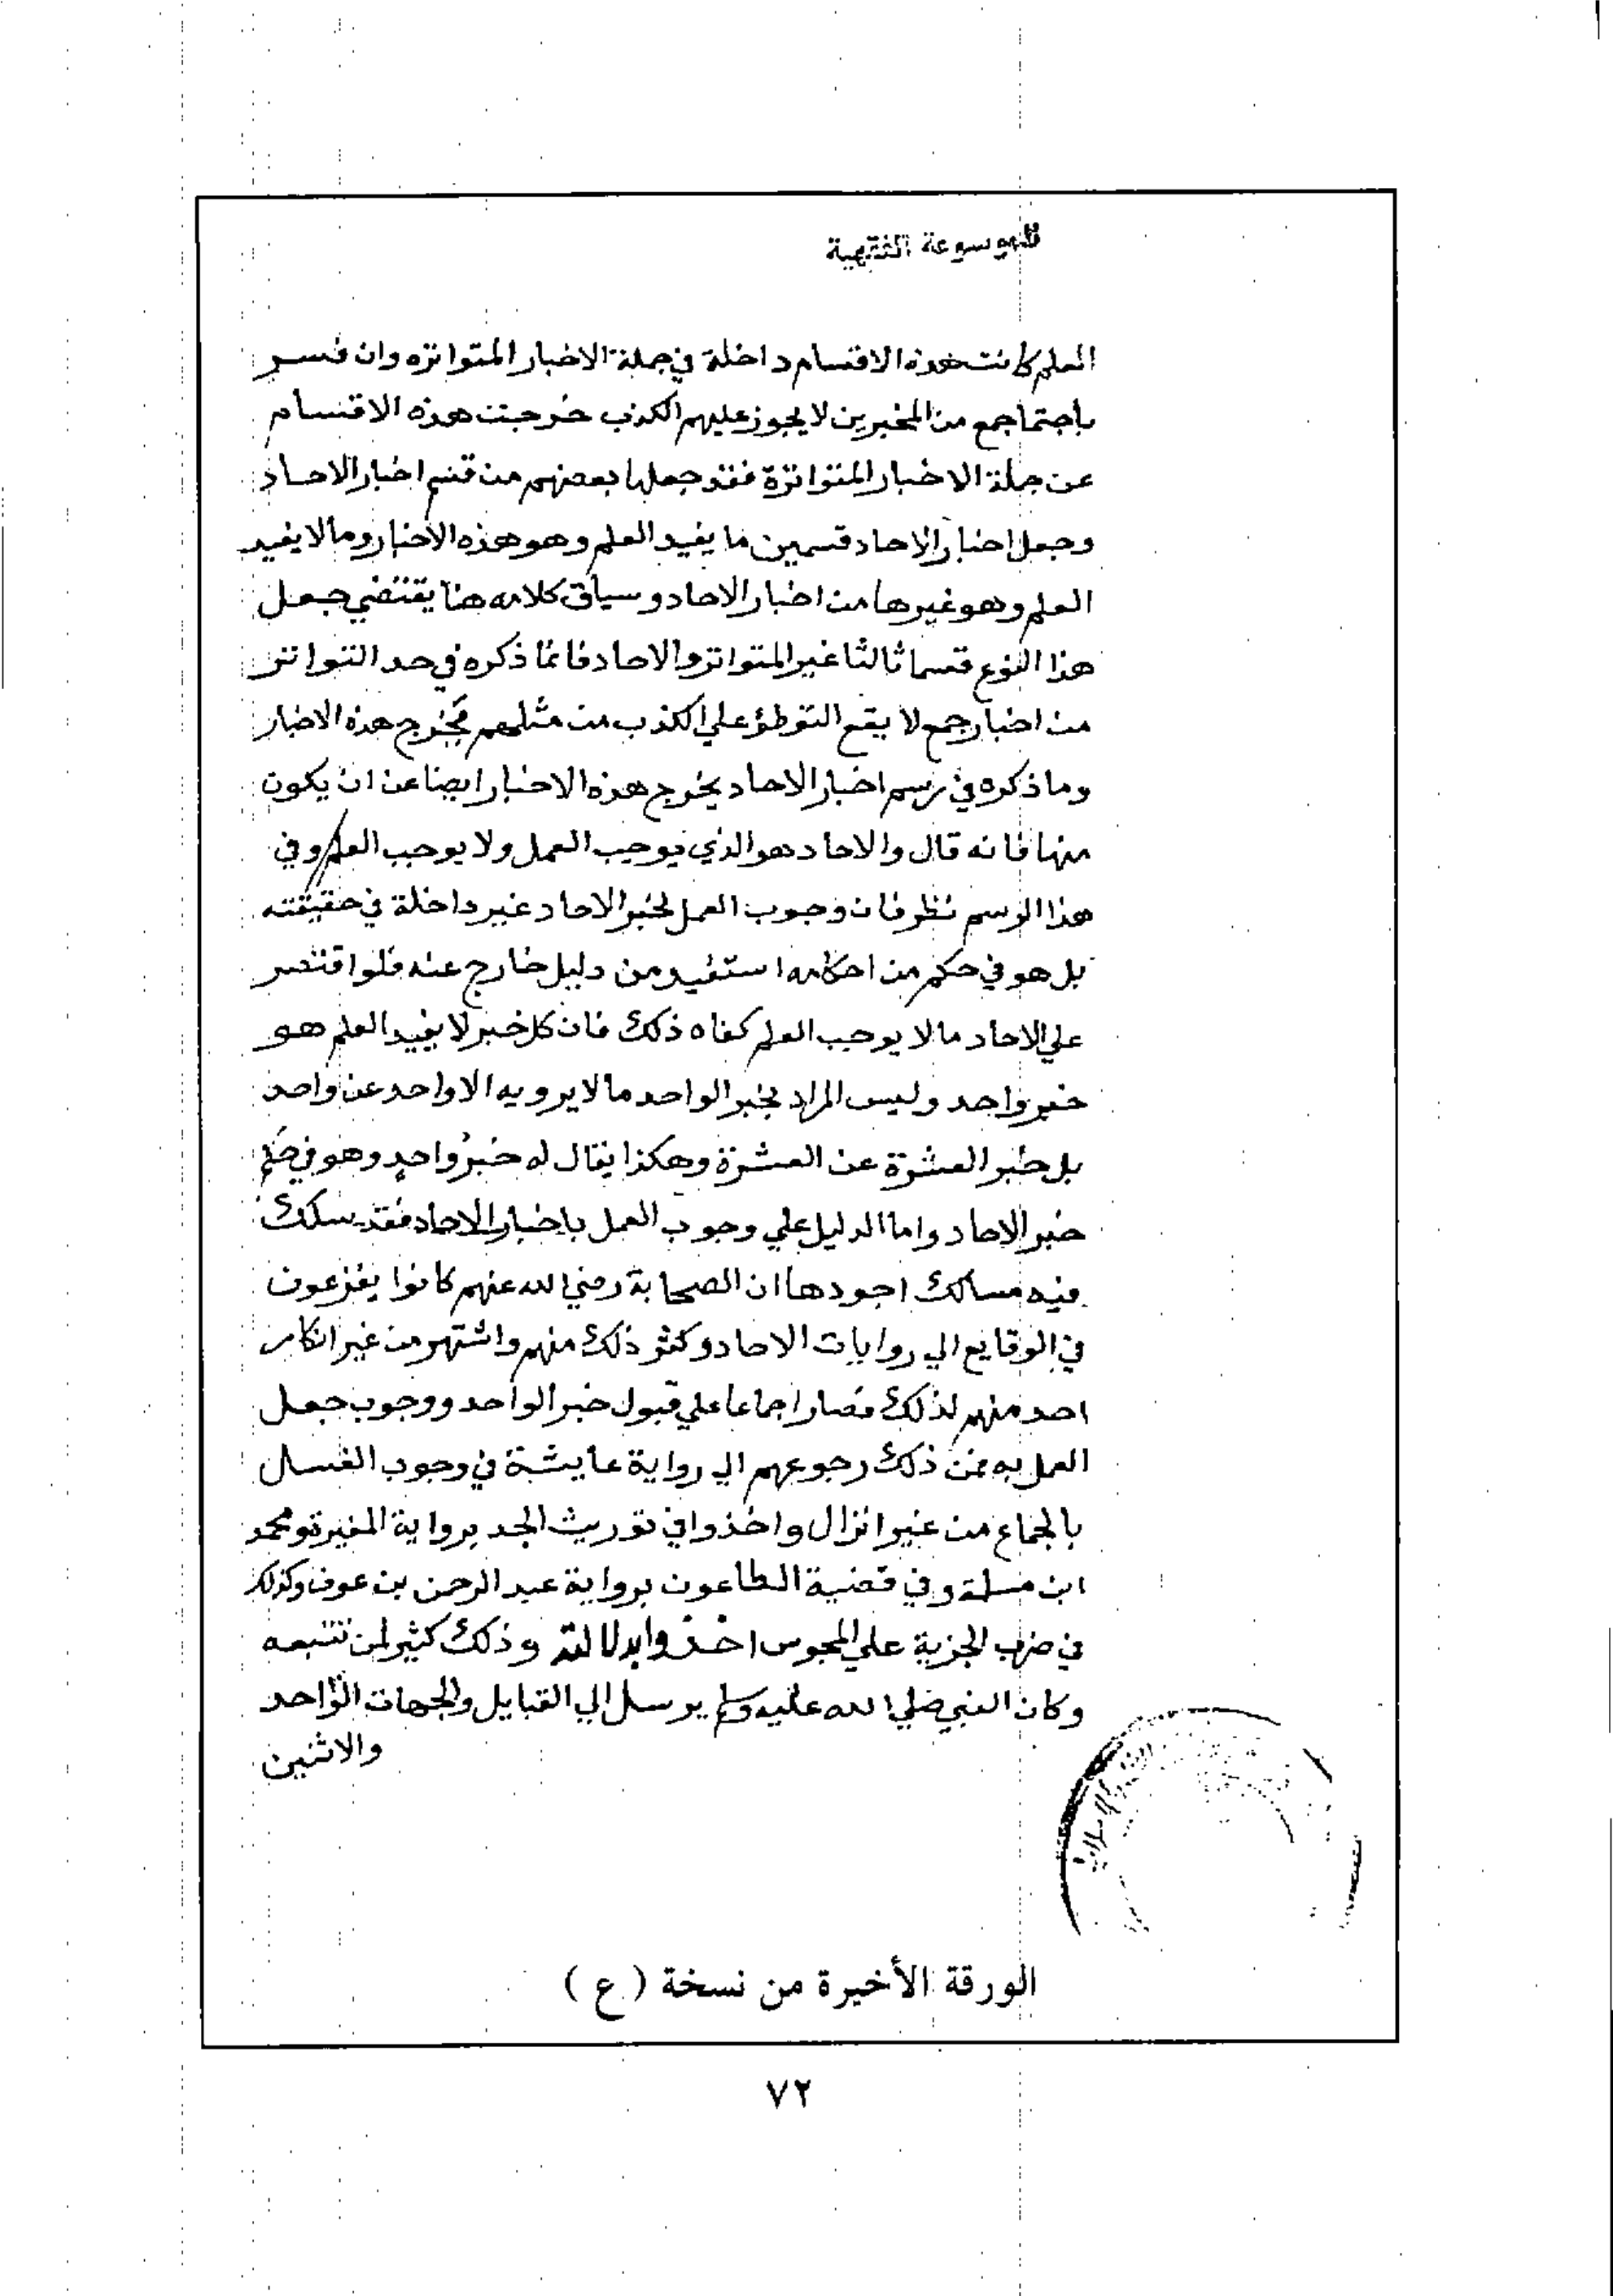 للموسوعة الفقهية
العلم كانت هذه الاقسام داخلة في جملة الاخبار المتواتره وان فسر
باجتما جمع من المخبرين لا يجوز عليهم الكذب خرجت هذه الاقسام
عن جملة الاخبار المتواترة فقد جعلها بعضهم من قسم اخبار الاحاد
وجعل اخبار الاحاد قسمين ما يفيد العلم وهو هذه الاخبار وما لا يفيد
العلم وهو غيرها من اخبار الاحاد وسياق كلامه هنا يقتضي جعل
هذا النوع قسما ثالثا غير المتواتر والاحاد فانما ذكره في حد التواتر
من اخبار جمع لا يقع التوطؤ علي الكذب من مثلهم يخرج هذه الاخبار
وما ذكره في رسم اخبار الاحاد يخرج هذه الاخبار ايضا عن ان يكون
منها فانه قال والاحاد هو الذي يوجب العمل ولا يوجب العلم وفي
هذا الرسم نظر فان وجوب العمل لخبر الاحاد غير داخلة في حقيقته
بل هو في حكم من احكامه استفيد من دليل خارج عنه فلو اقتصر
علي الاحاد ما لا يوجب العلم كفاه ذلك فان كل خبر لا يفيد العلم هو
خبر واحد وليس المراد بخبر الواحد ما لا يرويه الا واحد عن واحد
بل خبر العشرة عن العشرة وهكذا يقال له خبرُ واحدٍ وهو في حكم
خبر الاحاد واما الدليل علي وجوب العمل باخبار الاحاد فقد سلك
فيه مسالك اجودها ان الصحابة رضي الله عنهم كانوا يفزعون
في الوقايع الي روايات الاحاد وكثر ذلك منهم واشتهر من غير انكار
احد منهم لذلك فصار اجماعا علي قبول خبر الواحد ووجوب جعل
العمل به فمن ذلك رجوعهم الي رواية عايشة في وجوب الغسال
بالجماع من غير انزال واخذوا في توريث الجد برواية المغيرة ومحمد
ابن مسلمة وفي قضية الطاعون برواية عبد الرحمن بن عوف وكذلك
في ضرب الجزية علي المجوس اخذوا وذلك كثير لمن تتبعه
وكان النبي صلي الله عليه وسلم يرسل الي القبايل والجهات الواحد
والاثنين
الورقة الأخيرة من نسخة (ع)
٧٢